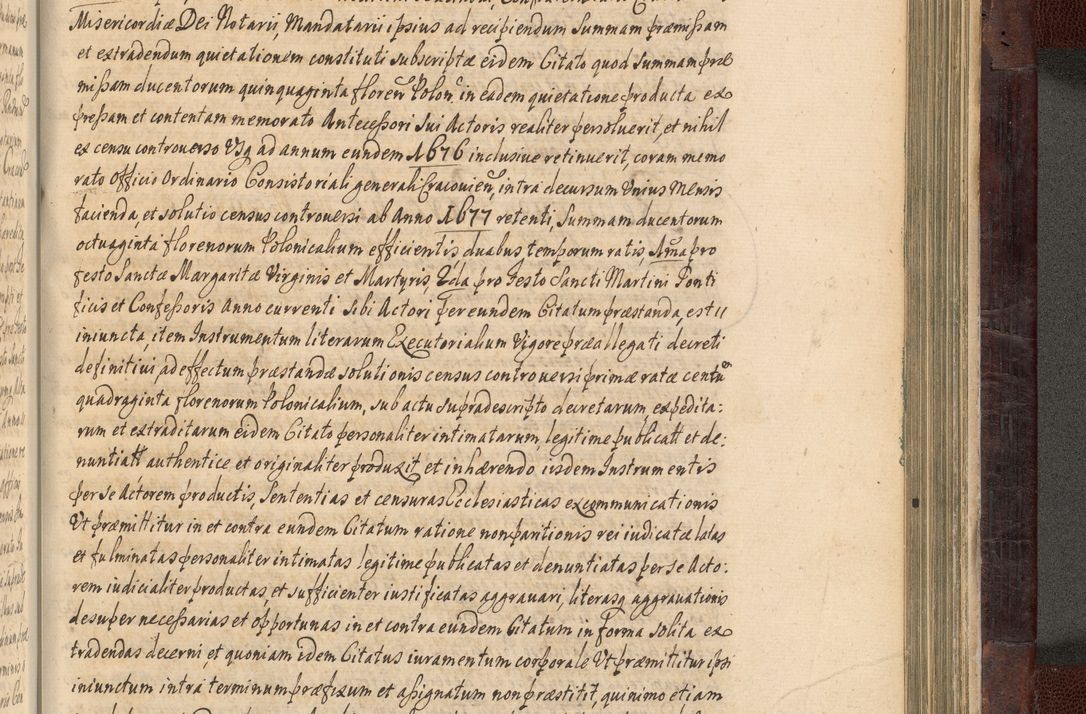 Misericordiæ Dei Notarij, Mandatarij ipsius ad recipiendum Summam præmissam
et extradendum quietationem constituti subscriptæ eidem Citato quod Summam præ
missam ducentorum quinquaginta floren Polon in eadem quietatione producta ex
pressam et contentam memorato Antecessori sui Actoris realiter persoluerit, et nihil
ex censu controuerso Vsq ad annum eundem 1676 inclusiue retinuerit, coram memo
rato Officio Ordinario Consistoriali generali Cracouien, intra decursum Vnius Mensis
facienda, et solutio census controuersi ab Anno 1677 retenti, Summam ducentorum
octuaginta florenorum Polonicalium efficientis duabus temporum ratis, A ma pro
festo Sanctæ Margaritæ Virginis et Martyris, 2da pro festo Sancti Martini Ponti
ficis et Confessoris Anno currenti sibi Actori per eundem Citatum præstanda, est
iniuncta, item Instrumentum literarum Executorialium Vigore præallegati decreti
definitiui, ad effectum præstandæ solutionis census controuersi primæ ratæ centu
quadraginta florenorum Polonicalium, sub actu supradescripto decretarum expedita:
rum et extraditarum eidem Citato personaliter intimatarum, legitime publicatt et de:
nuntiatt authentice et originaliter produxit, et inhærendo iisdem Instrumentis
per se Actorem productis, Sententias et censuras Ecclesiasticas excommunicationis
Vt præmittitur in et contra eundem Citatum ratione non paritionis rei iudicatæ latas
et fulminatas personaliter intimatas legitime publicatas et denuntiatas per se Acto:
rem iudicialiter productas, et sufficienter iustificatas aggrauari, literasq aggrauationis
desuper necessarias et opportunas in et contra eundem Citatum in forma solita ex
tradendas decerni et quoniam idem Citatus iuramentum corporale Vt præmittitur ipsi
iniunctum intra terminum præfixum et assignatum non præstitit, quinimo etiam